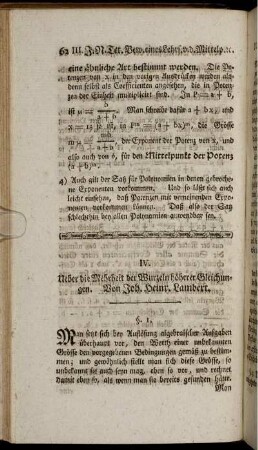 62 III. J. N. Tet. Bew. eines Lehrs. v. d. Mittelp. ꝛc.
eine ähnliche Art bestimmt werden. Die Po-
tenzen von x in den vorigen Ausdrücken werden
selbst als Coefficienten angesehen, die in Poten-
zen der Einheit multiplicirt sind. In P = a + b,
ist μ = Man schreibe dafür a + b x, und
es ist μ in P = (a + bx) die Größe
der Exponent der Potenz von x, und
also auch von b, für den Mittelpunkt der Potenz
(a + b)
4) Auch gilt der Satz für Polynomien in denen gebroche-
ne Exponenten vorkommen. Und so läßt sich auch
leicht einsehen, daß Potenzen mit verneinenden Expo-
nenten vorkommen können. Daß also der Satz
schlechthin bey allen Polynomien anwendbar sey.
IV.
Ueber die Mehrheit der Wurzeln höherer Gleichun-
gen. Von Joh. Heinr. Lambert.
§. 1.
Man setzt sich bey Auflösung algebraischer Aufgaben
überhaupt vor, den Werth einer unbekannten
Größe den vorgegebenen Bedingungen gemäß zu bestim-
men; und gewöhnlich stellt man sich diese Größe, so
unbekannt sie auch seyn mag, eben so vor, und rechnet
damit eben so, als wenn man sie bereits gefunden hätte.
Man